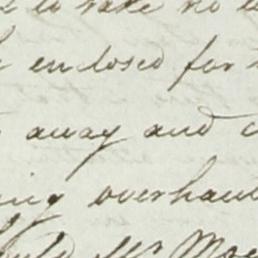 to take no
enclosed for
away and
ing overhau
Mr Mac